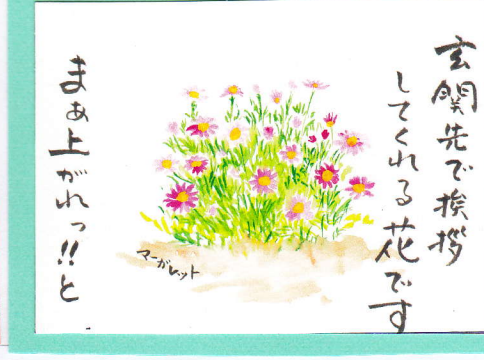 玄関先で挨拶
してくれる花です
まぁ上がれっ!!と
マーガレット